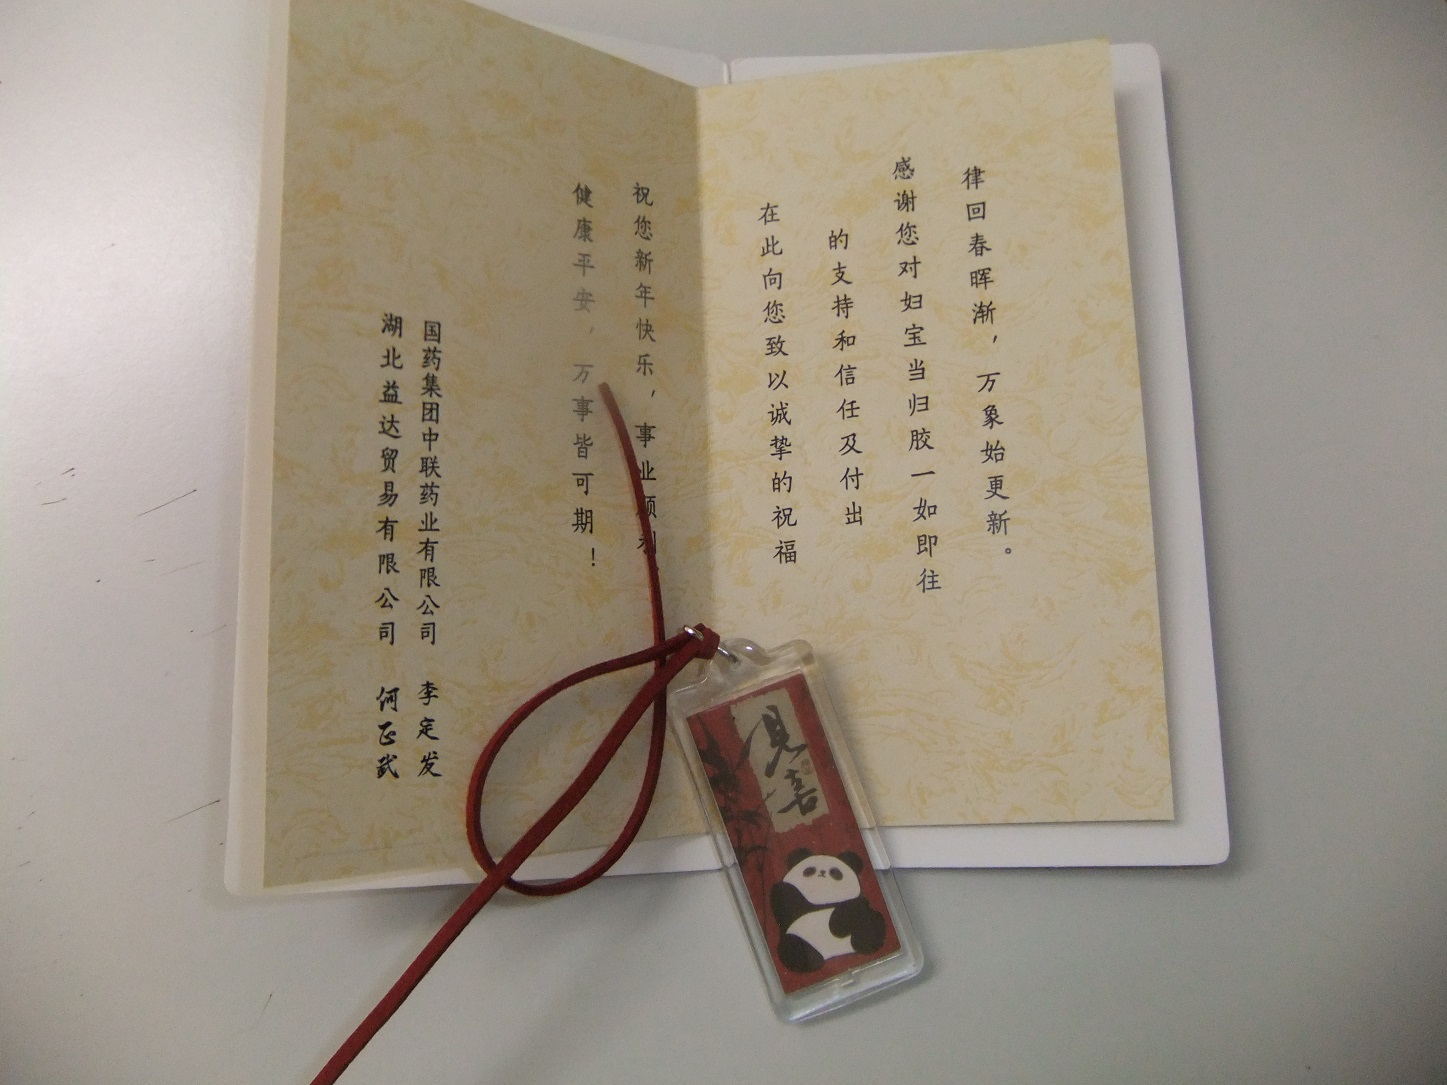 律回春晖渐，万象始更新。
感谢您对妇宝当归胶一如即往
的支持和信任及付出
在此向您致以诚挚的祝福
祝您新年快乐，事业顺利，
健康平安，万事皆可期！
国药集团中联药业有限公司 李定发
湖北益达贸易有限公司 何正武
见喜